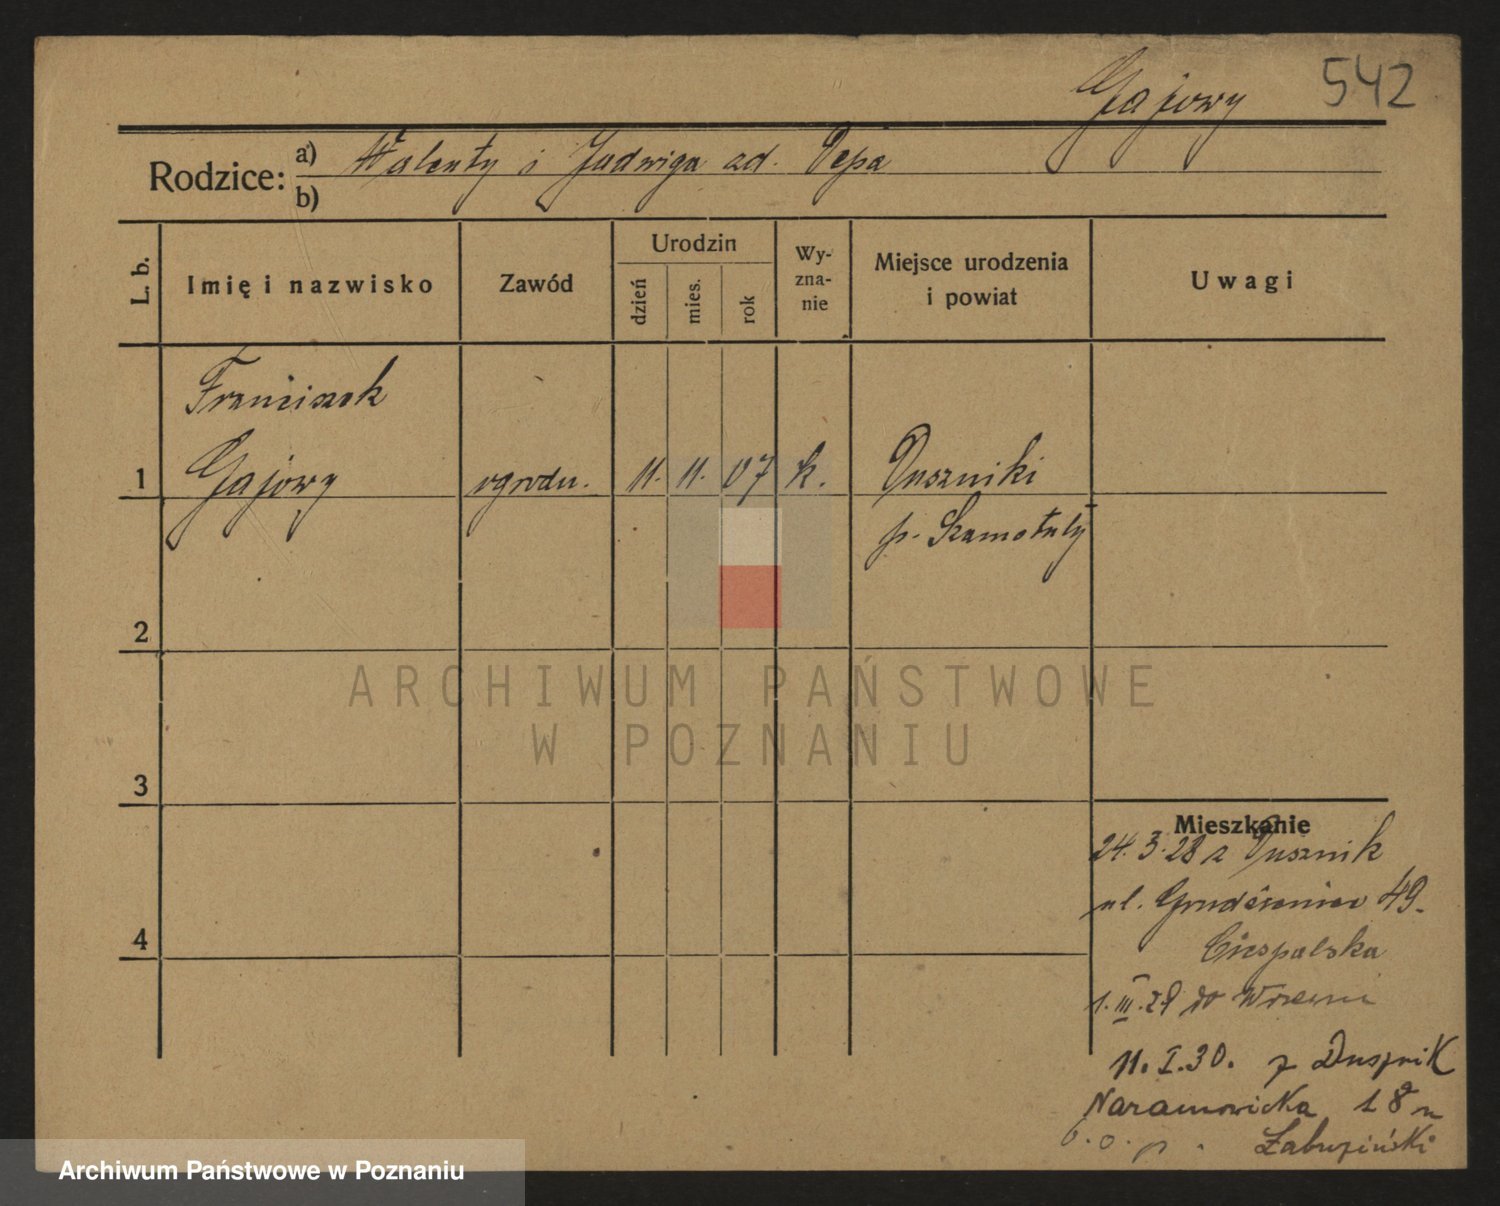 Gajowy 542
Rodzice: a) Walenty i Jadwiga zd.
b)
L. b. Imię i nazwisko Zawód Urodzin dzień mies. rok Wy-zna-nie Miejsce urodzenia i powiat Uwagi
Franciszek
1 Gajowy ogrodn. 11. 11. 07 k. Duszniki
p. Szamotuły
2
ARCHIWUM PAŃSTWOWE
W POZNANIU
3
Mieszkanie
24.3.28 z Dusznik
ul. 49.
4
1.III.29 do Wrześni
11.I.30. z Dusznik
Naramowicka 18 u
Archiwum Państwowe w Poznaniu